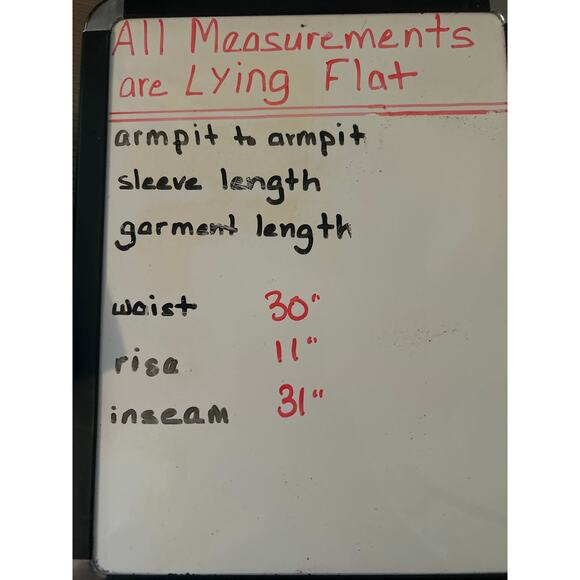 All Measurements
are Lying Flat
armpit to armpit
sleeve length
garment length
waist 30"
rise 11"
inseam 31"